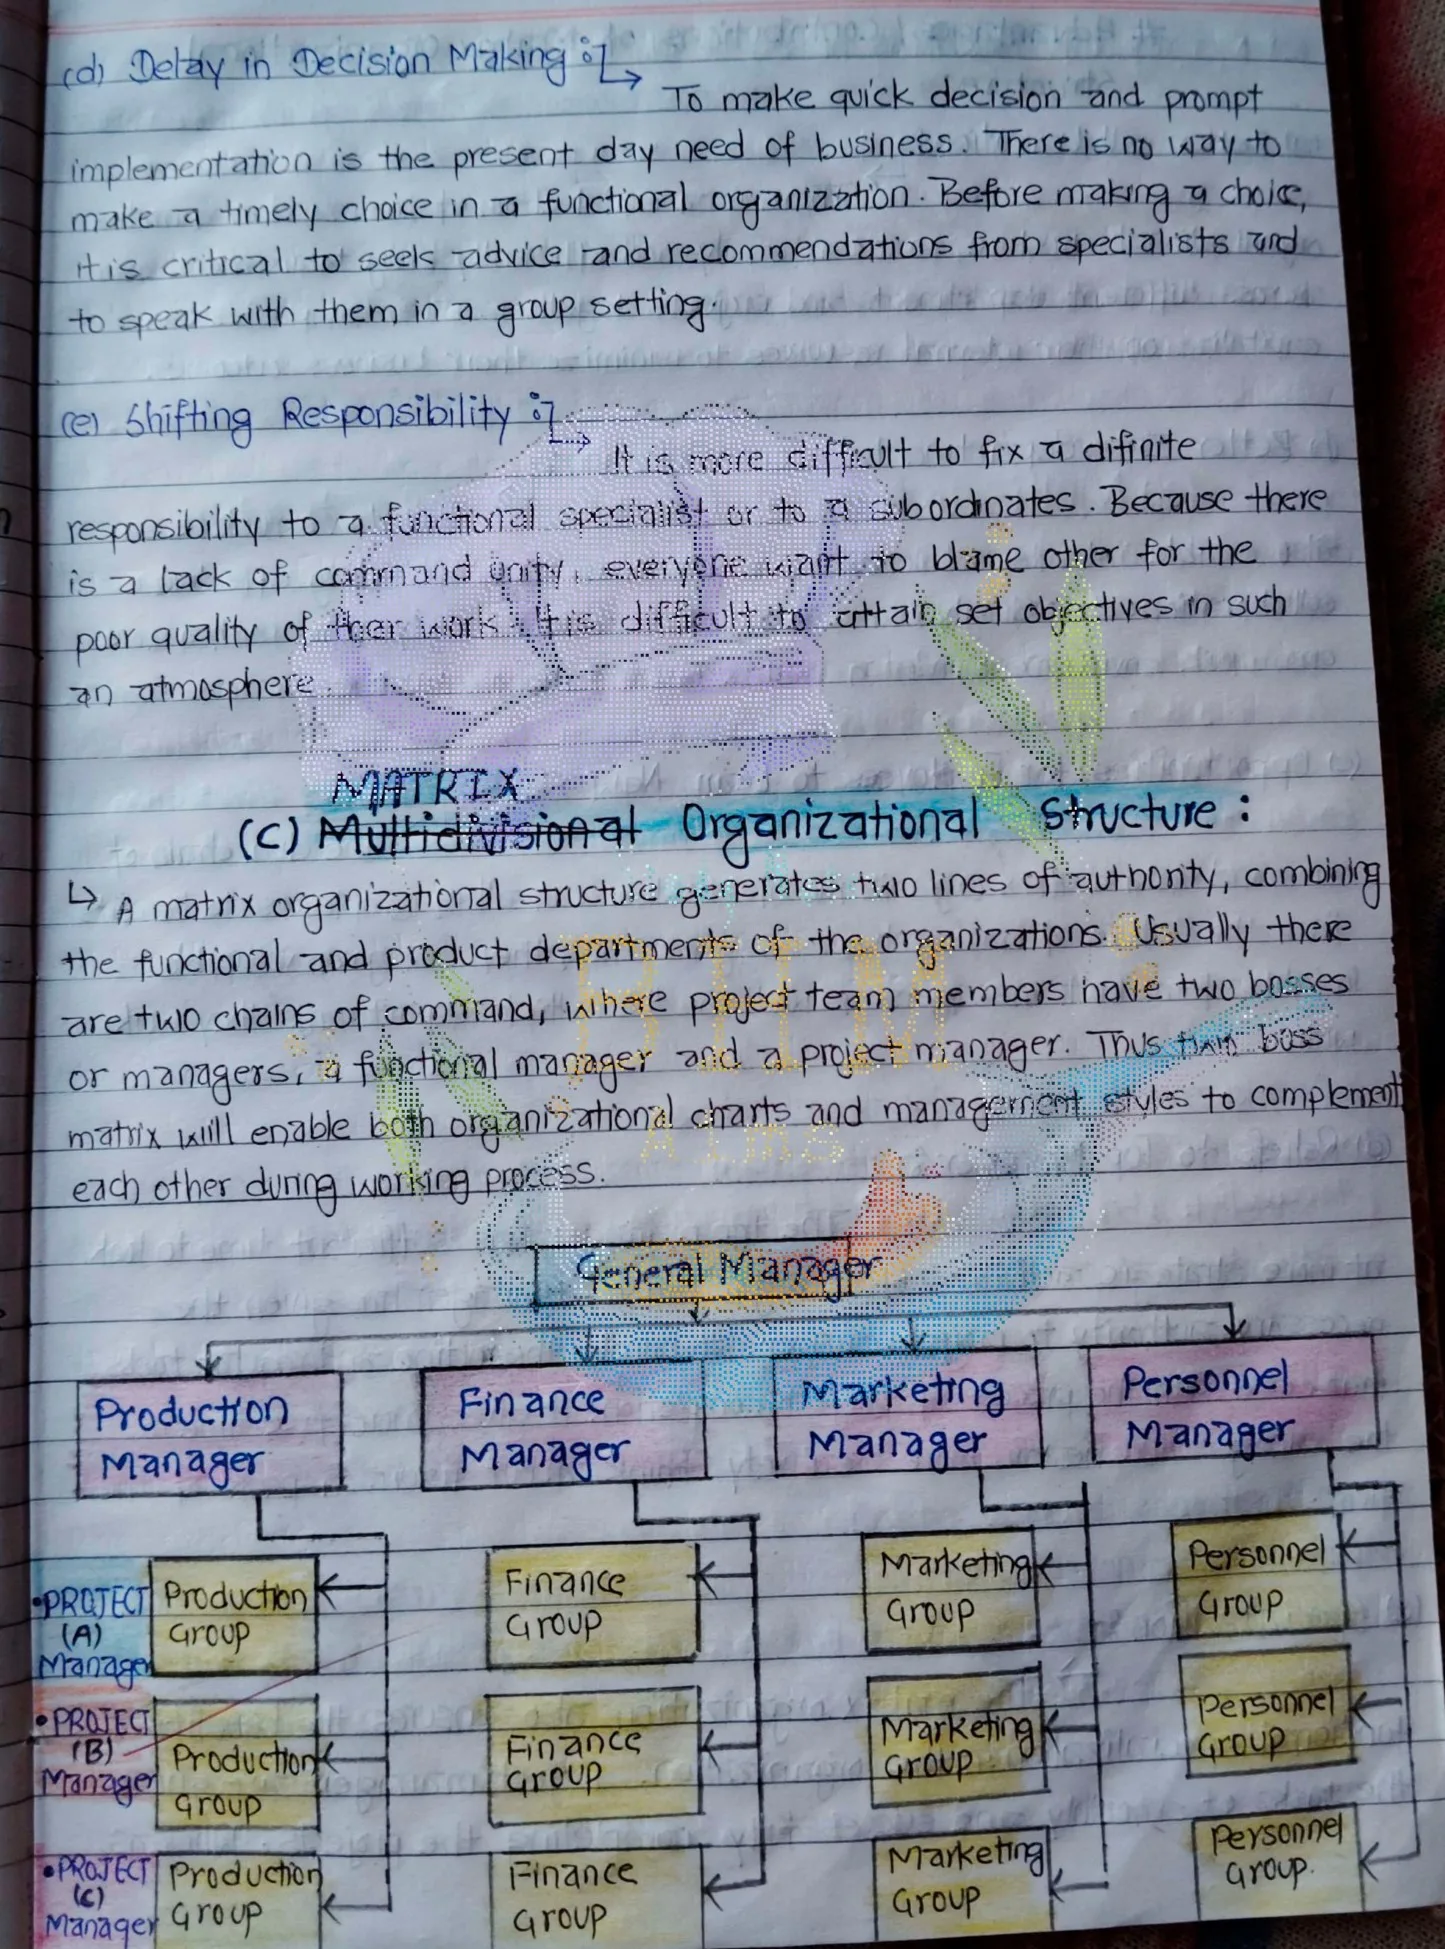 (d) Delay in Decision Making :
To make quick decision and prompt
implementation is the present day need of business. There is no way to
make a timely choice in a functional organization. Before making a choice,
it is critical to seek advice and recommendations from specialists and
to speak with them in a group setting.
(e) Shifting Responsibility :
It is more difficult to fix a difinite
responsibility to a functional specialist or to a subordinates. Because there
is a lack of command unity, everyone want to blame other for the
poor quality of their work. It is difficult to attain set objectives in such
an atmosphere.
MATRIX
(C) Multidivisional Organizational Structure :
↳ A matrix organizational structure generates two lines of authority, combining
the functional and product departments of the organizations. Usually there
are two chains of command, where project team members have two bosses
or managers, a functional manager and a project manager. Thus twin boss
matrix will enable both organizational charts and management styles to complement
each other during working process.
BHM
Alms
General Manager
Production Manager
Finance Manager
Marketing Manager
Personnel Manager
•PROJECT (A) Manager
Production Group
Finance Group
Marketing Group
Personnel Group
•PROJECT (B) Manager
Production Group
Finance Group
Marketing Group
Personnel Group
•PROJECT (C) Manager
Production Group
Finance Group
Marketing Group
Personnel Group.